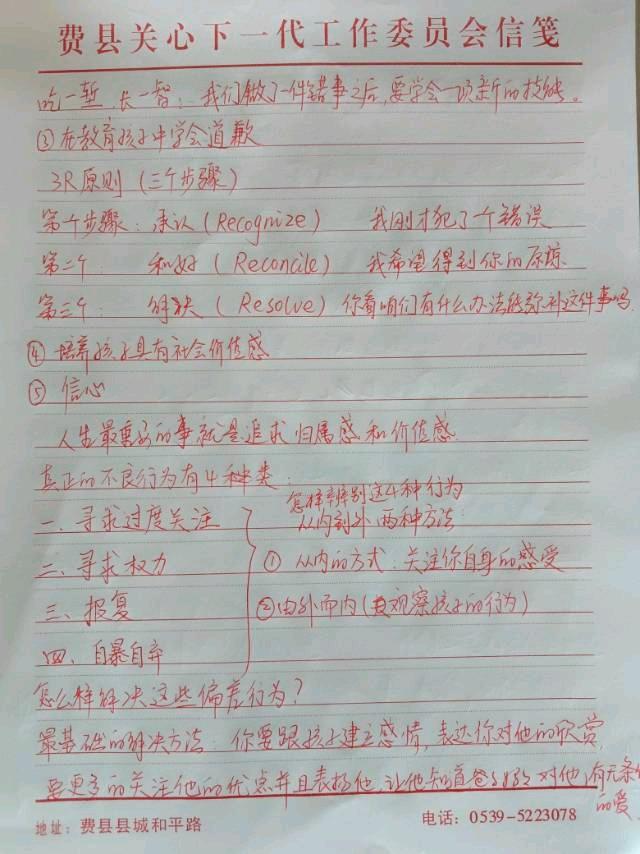 费县关心下一代工作委员会信笺
吃一堑,长一智:我们做了一件错事之后,要学会一项新的技能。
③在教育孩子中学会道歉
3R原则(三个步骤)
第一个步骤:承认(Recognize) 我刚才犯了一个错误
第二个: 和好(Reconcile) 我希望得到你的原谅
第三个: 解决(Resolve)你看咱们有什么办法能弥补这件事吗
④培养孩子具有社会价值感
⑤信心
人生最重要的事就是追求归属感和价值感
真正的不良行为有4种类:
一、寻求过度关注
二、寻求权力
三、报复
四、自暴自弃
怎样辨别这4种行为
从内到外两种方法:
①从内的方式:关注你自身的感受
②由外而内(观察孩子的行为)
怎么样解决这些偏差行为?
最基础的解决方法:你要跟孩子建立感情,表达你对他的欣赏
要更多的关注他的优点并且表扬他,让他知道爸妈对他有无条件的爱
地址:费县县城和平路
电话:0539-5223078